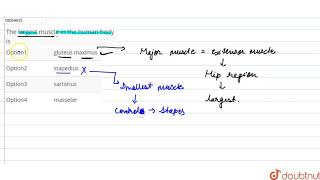 The largest muscle in the human body
is
Option1 gluteus maximus ✓ → Major muscle = extensor muscle
Hip region
largest.
Option2 stapedius X → Smallest muscle
controls → stapes
Option3 sartorius
Option4 masseter
doubtnut